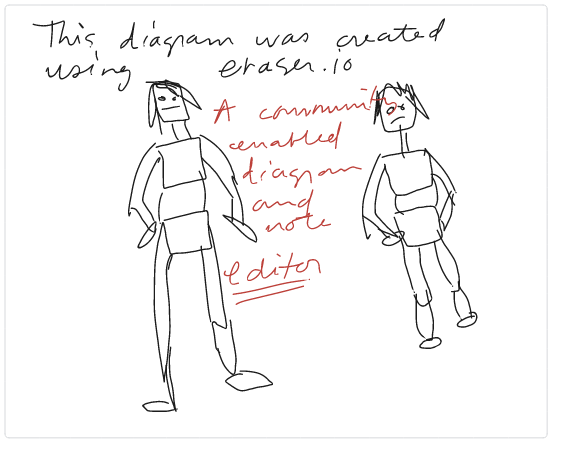 This diagram was created
using eraser.io
A community
enabled
diagram
and
note
editor